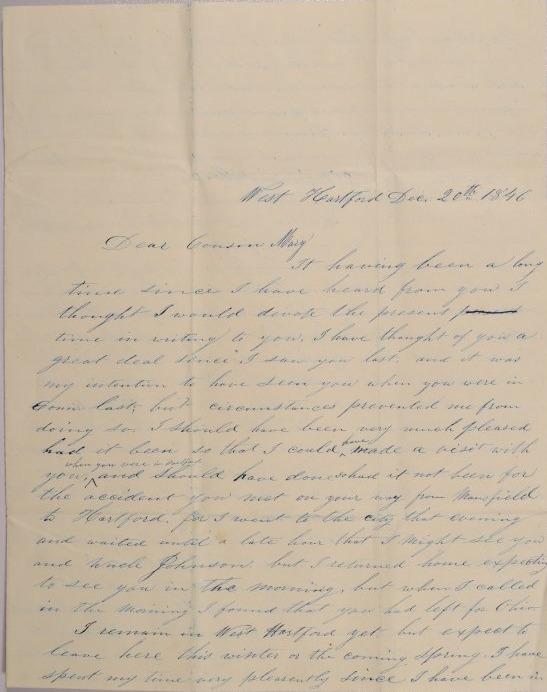 West Hartford Dec. 20th 1846
Dear Couson Mary
It having been a long
time since I have heard from you I
thought I would devote the present
time in writing to you. I have thought of you a
great deal since I saw you last, and it was
my intention to have seen you when you were in
Conn last, but circumstances prevented me from
doing so. I should have been very much pleased
had it been so that I could have made a visit with
when you were in
you, and should have done so had it not been for
the accident you met on your way from Mansfield
to Hartford. for I went to the city that evening
and waited until a late hour that I might see you
and Uncle Johnson but I returned home expecting
to see you in the morning, but when I called
in the morning I found that you had left for Ohio
I remain in West Hartford yet but expect to
leave here this winter or the coming spring. I have
spent my time very pleasently since I have been in